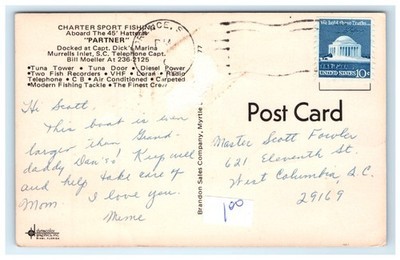 CHARTER SPORT FISHING
Aboard The 45' Hatteras
"PARTNER"
Docked at Capt. Dick's Marina
Murrells Inlet, S.C. Telephone Capt.
Bill Moeller At 236-2125
•Tuna Tower •Tuna Door •Diesel Power
•Two Fish Recorders •VHF •Loran •Radio
Telephone •C B •Air Conditioned •Carpeted
•Modern Fishing Tackle •The Finest Crew
Hi Scott,
This boat is even
larger than Grand-
daddy Dan's! Keep well
and help take care of
Mom.
I love you.
Meme
Brandon Sales Company, Myrtle
77
UNITED STATES 10c
Post Card
Master Scott Fowler
621 Eleventh St.
West Columbia S.C.
29169
1.00